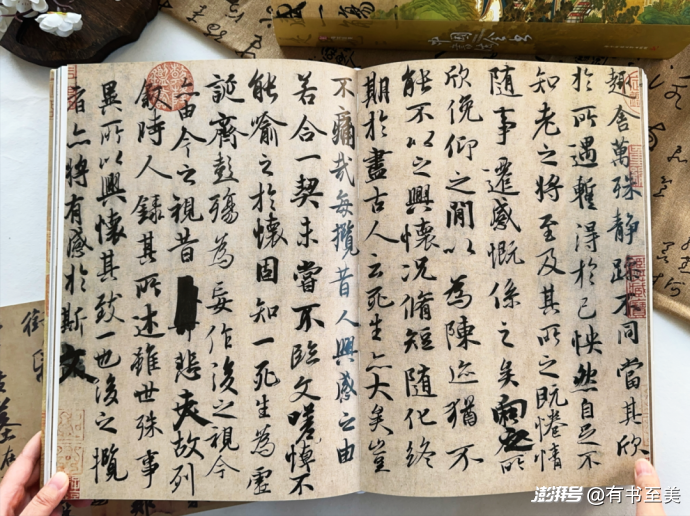 趣舍萬殊靜躁不同當其欣
於所遇蹔得於己怏然自足不
知老之將至及其所之既惓情
隨事遷感慨係之矣向之所
欣俛仰之閒以為陳迹猶不
能不以之興懷況脩短隨化終
期於盡古人云死生亦大矣豈
不痛哉每攬昔人興感之由
若合一契未嘗不臨文嗟悼不
能喻之於懷固知一死生為虛
誕齊彭殤為妄作後之視今
亦由今之視昔悲夫故列
敘時人錄其所述雖世殊事
異所以興懷其致一也後之攬
者亦將有感於斯文
澎湃号@有书至美